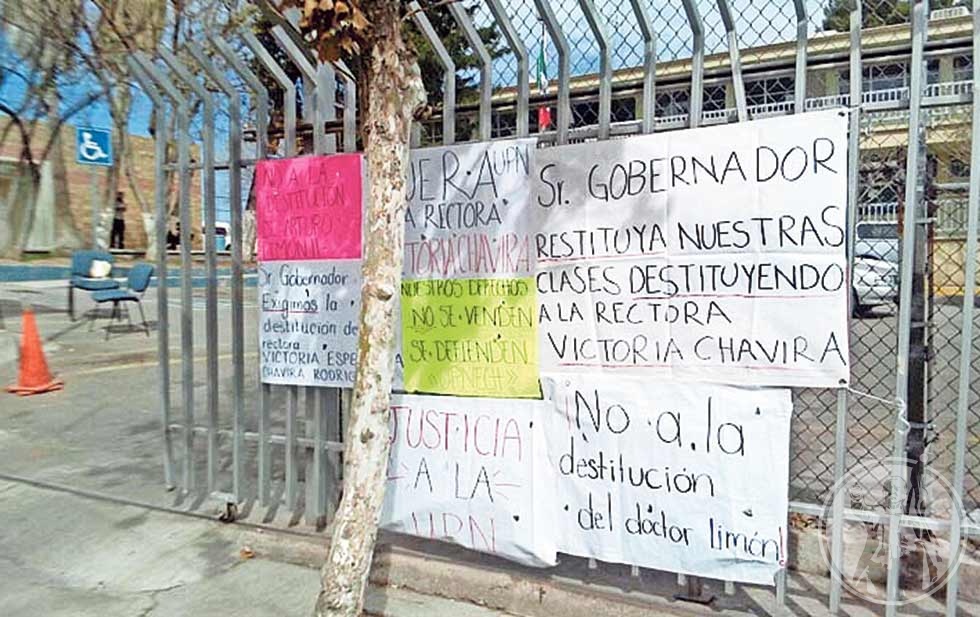 NO A LA
DESTITUCIÓN
DE ARTURO
LIMÓN
Sr. Gobernador
Exigimos la
destitución de
rectora
VICTORIA ESPE
CHAVIRA RODRIG
UERA UPN
A RECTORA
TORIA CHAVIRA
NUESTROS DERECHOS
NO SE VENDEN
SE DEFIENDEN
«UPNECH»
JUSTICIA
A LA
UPN
Sr. GOBERNADOR
RESTITUYA NUESTRAS
CLASES DESTITUYENDO
A LA RECTORA
VICTORIA CHAVIRA
¡No a la
destitución
del doctor limón!